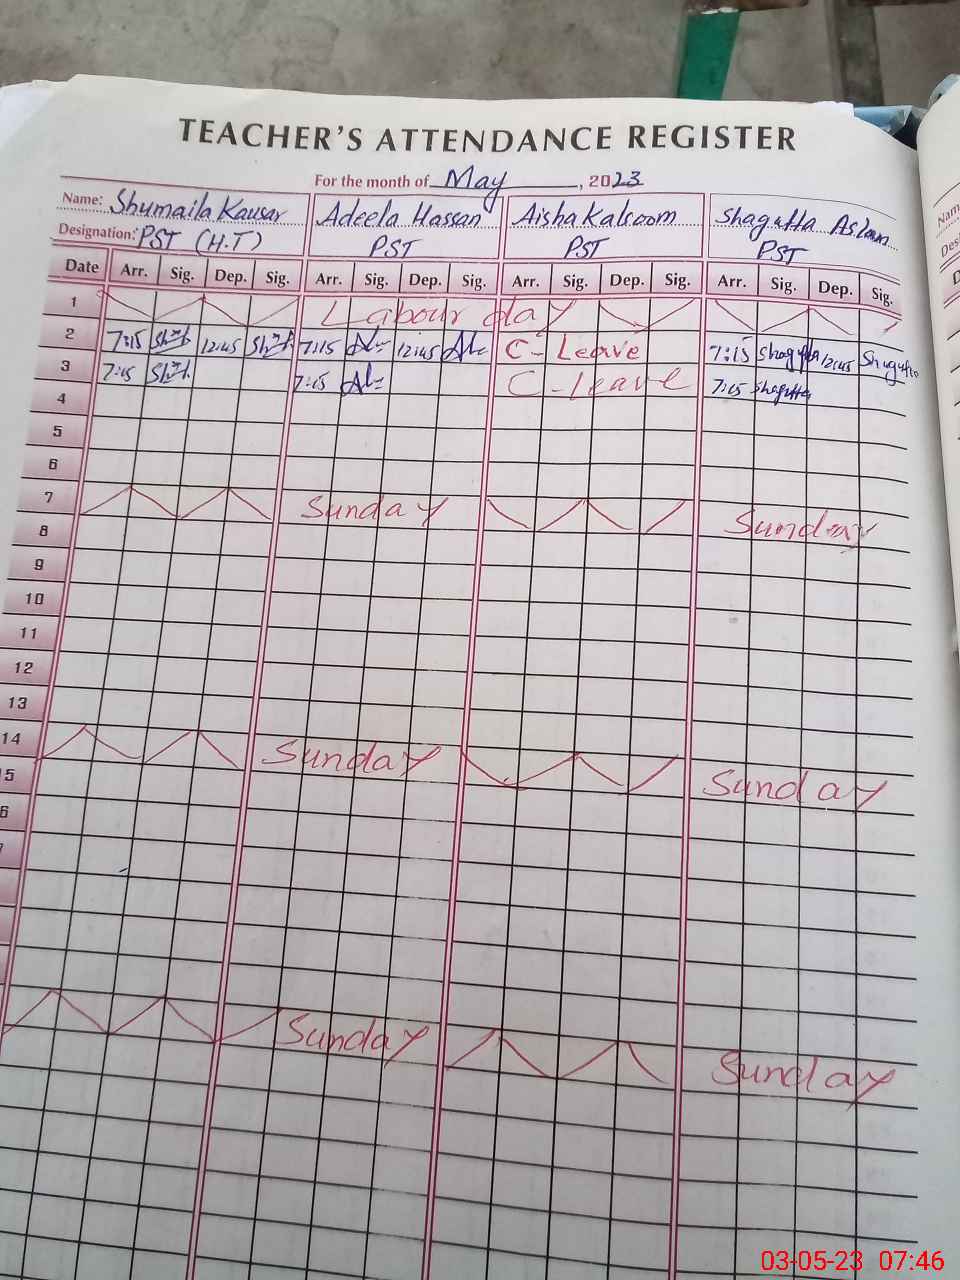 TEACHER'S ATTENDANCE REGISTER
For the month of May, 2023
Name: Shumaila Kausar Adeela Hassan Aisha Kalsoom Shagufta Aslam
Designation: PST (H.T) PST PST PST
Date Arr. Sig. Dep. Sig. Arr. Sig. Dep. Sig. Arr. Sig. Dep. Sig. Arr. Sig. Dep. Sig.
1 Labour day
2 7:15 12:45 7:15 12:45 C- Leave 7:15 Shagufta 12:45 Shagufta
3 7:15 7:15 C-leave 7:15 Shagufta
4
5
6
7 Sunday Sunday
8
9
10
11
12
13
14 Sunday Sunday
5
6
Sunday Sunday
Nam
Des
D
03-05-23 07:46